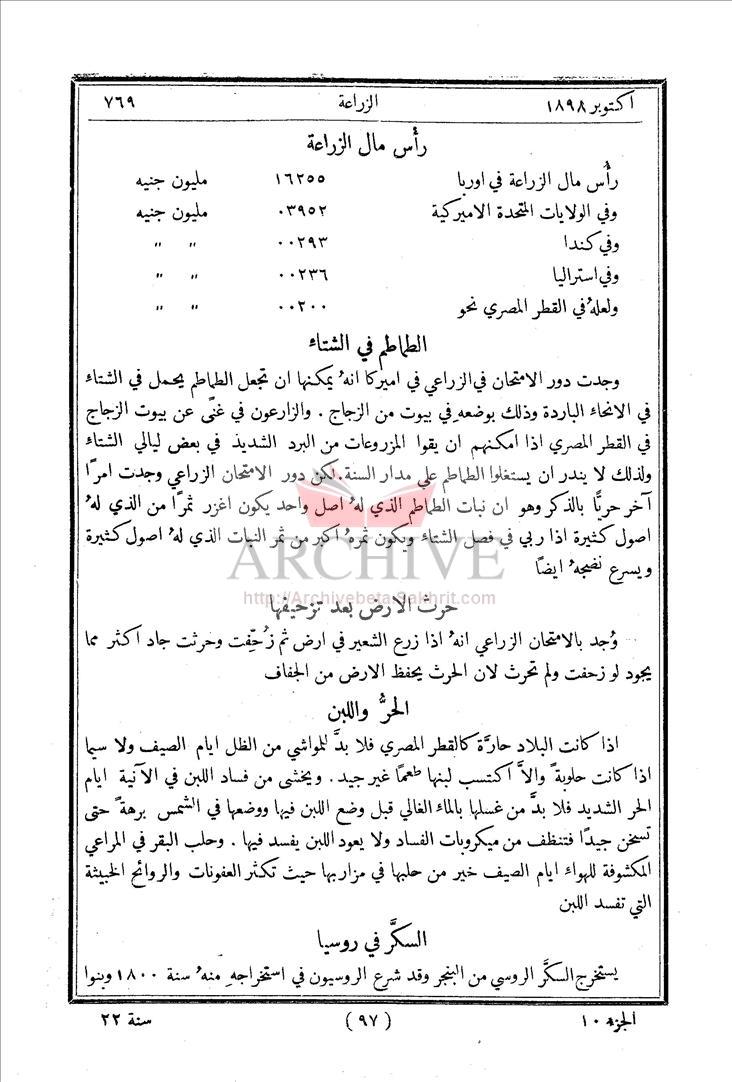 اكتوبر ١٨٩٨ الزراعة ٧٦٩
رأس مال الزراعة
رأس مال الزراعة في اوربا ١٦٢٥٥ مليون جنيه
وفي الولايات المتحدة الاميركية ٠٣٩٥٢ مليون جنيه
وفي كندا ٠٠٢٩٣ " "
وفي استراليا ٠٠٢٣٦ " "
ولعلهُ في القطر المصري نحو ٠٠٢٠٠ " "
الطماطم في الشتاء
وجدت دور الامتحان في الزراعي في اميركا انهُ يمكنها ان تجعل الطماطم يحمل في الشتاء
في الانحاء الباردة وذلك بوضعهِ في بيوت من الزجاج . والزارعون في غنًى عن بيوت الزجاج
في القطر المصري اذا امكنهم ان يقوا المزروعات من البرد الشديد في بعض ليالي الشتاء
ولذلك لا يندر ان يستغلوا الطماطم على مدار السنة . لكن دور الامتحان الزراعي وجدت امرًا
آخر حريًّا بالذكر وهو ان نبات الطماطم الذي لهُ اصل واحد يكون اغزر ثمرًا من الذي لهُ
اصول كثيرة اذا ربي في فصل الشتاء ويكون ثمرهُ اكبر من ثمر النبات الذي لهُ اصول كثيرة
ويسرع نضجهُ ايضًا
ARCHIVE
http://Archivebeta.Sakhrit.com
حرث الارض بعد تزحيفها
وُجد بالامتحان الزراعي انهُ اذا زرع الشعير في ارض ثم زُحِّفت وحرثت جاد اكثر مما
يجود لو زحفت ولم تحرث لان الحرث يحفظ الارض من الجفاف
الحرُّ واللبن
اذا كانت البلاد حارَّة كالقطر المصري فلا بدَّ للمواشي من الظل ايام الصيف ولا سيما
اذا كانت حلوبةً والاَّ اكتسب لبنها طعمًا غير جيد . ويخشى من فساد اللبن في الآنية ايام
الحر الشديد فلا بدَّ من غسلها بالماء الغالي قبل وضع اللبن فيها ووضعها في الشمس برهةً حتى
تسخن جيدًا فتنظف من ميكروبات الفساد ولا يعود اللبن يفسد فيها . وحلب البقر في المراعي
المكشوفة للهواء ايام الصيف خير من حلبها في مزاربها حيث تكثر العفونات والروائح الخبيثة
التي تفسد اللبن
السكَّر في روسيا
يستخرج السكَّر الروسي من البنجر وقد شرع الروسيون في استخراجهِ منهُ سنة ١٨٠٠ وبنوا
الجزء ١٠ (٩٧) سنة ٢٢